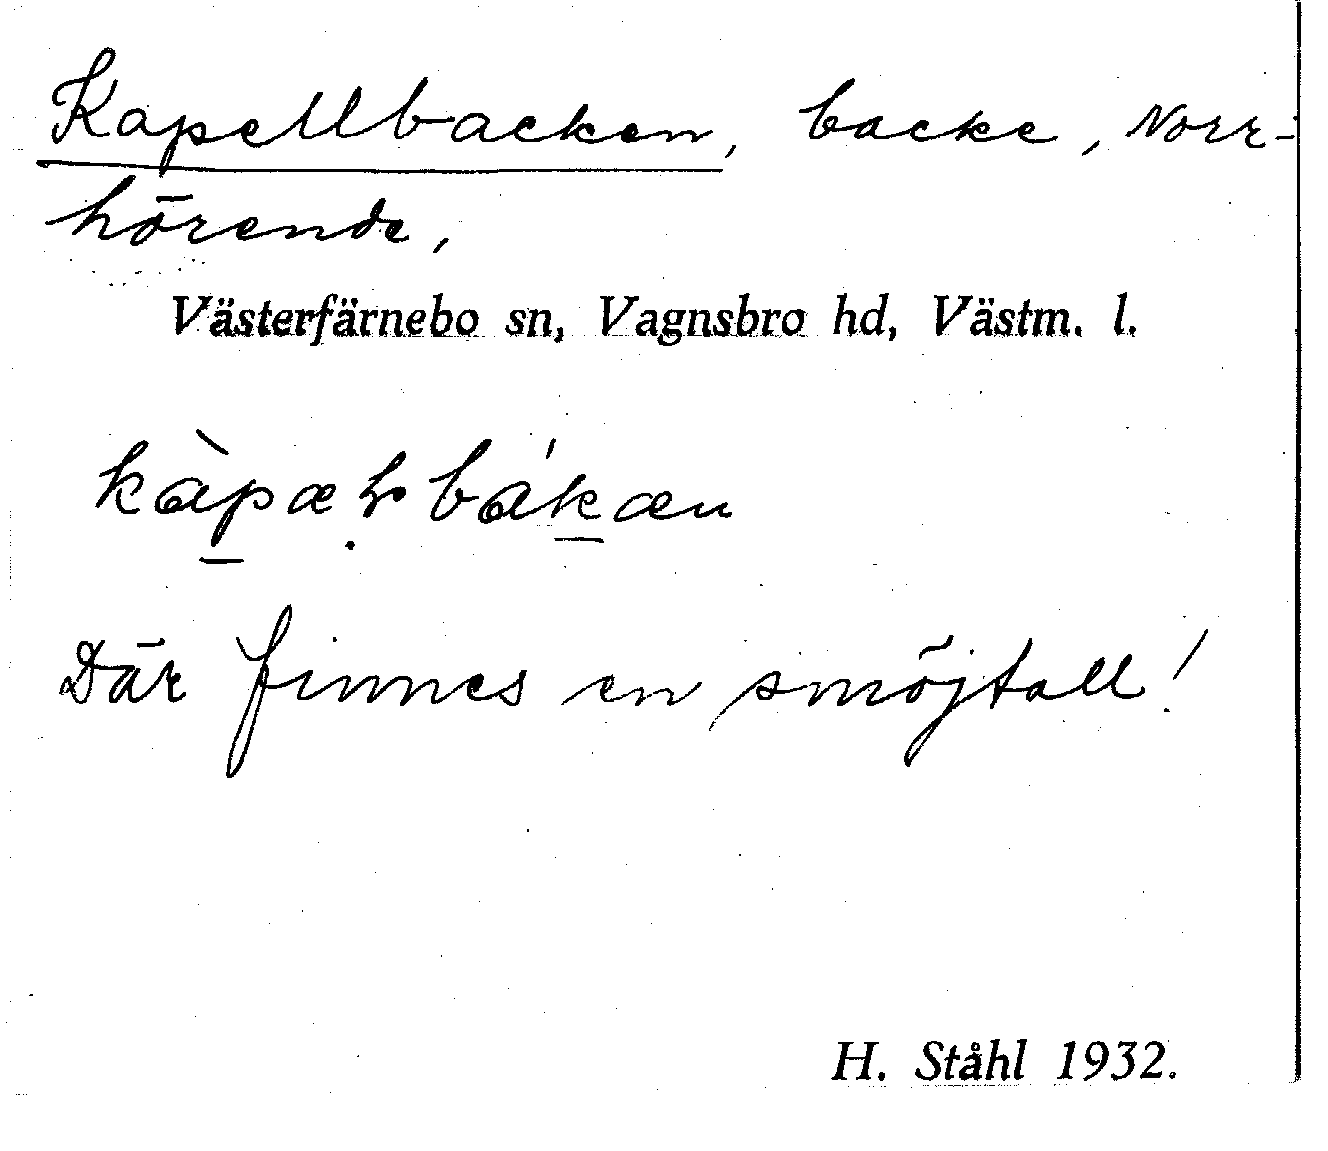 Kapellbacken, backe, Norr-
hörende,
Västerfärnebo sn, Vagnsbro hd, Västm. l.
Där finnes en smöjtall!
H. Ståhl 1932.